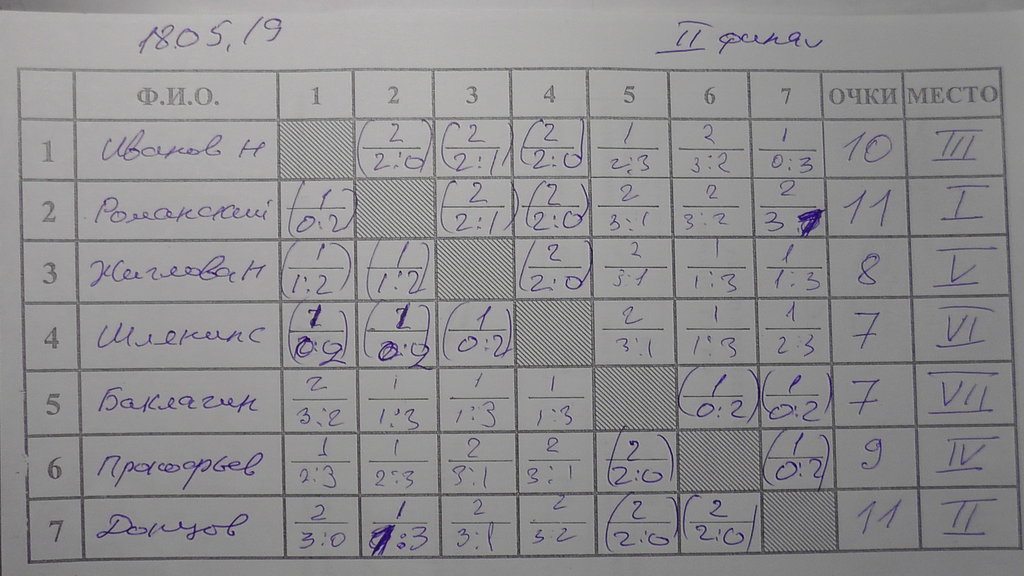 18.05.19 II финал
Ф.И.О. 1 2 3 4 5 6 7 ОЧКИ МЕСТО
1 Иванов Н (2/2:0) (2/2:1) (2/2:0) 1/2:3 2/3:2 1/0:3 10 III
2 Романский (1/0:2) (2/2:1) (2/2:0) 2/3:1 2/3:2 2/3:1 11 I
3 Жиглова Н (1/1:2) (1/1:2) (2/2:0) 2/3:1 1/1:3 1/1:3 8 V
4 Шленипс (1/0:2) (1/0:2) (1/0:2) 2/3:1 1/1:3 1/2:3 7 VI
5 Баклагин 2/3:2 1/1:3 1/1:3 1/1:3 (1/0:2) (1/0:2) 7 VII
6 Прокофьев 1/2:3 1/2:3 2/3:1 2/3:1 (2/2:0) (1/0:2) 9 IV
7 Донцов 2/3:0 1/1:3 2/3:1 2/3:2 (2/2:0) (2/2:0) 11 II